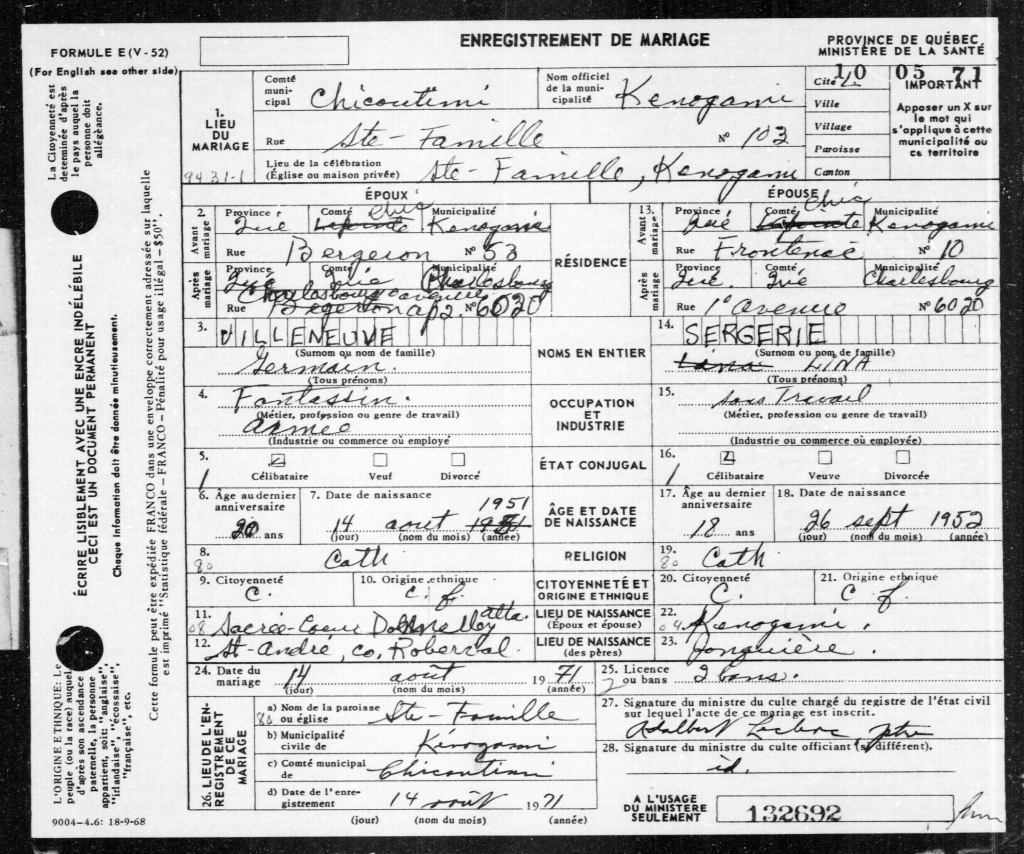 FORMULE E (V - 52)
(For English see other side)
ENREGISTREMENT DE MARIAGE
PROVINCE DE QUÉBEC
MINISTÈRE DE LA SANTÉ
10 05 71
1. LIEU DU MARIAGE
Comté municipal Chicoutimi
Nom officiel de la municipalité Kenogami
Rue Ste-Famille No 103
Lieu de la célébration (Église ou maison privée) Ste-Famille, Kenogami
9431-1
Cité
Ville
Village
Paroisse
Canton
IMPORTANT
Apposer un X sur
le mot qui
s'applique à cette
municipalité ou
ce territoire
ÉPOUX
ÉPOUSE
RÉSIDENCE
2. Avant mariage
Province Comté Municipalité
Qué Lapointe Chic Kenogami
Rue Bergeron No 53
Après mariage
Province Comté Municipalité
Qué Charlesbourg
Rue Bergeron ap2. No 6020
13. Avant mariage
Province Comté Municipalité
Qué Lapointe Chic Kenogami
Rue Frontenac No 10
Après mariage
Province Comté Municipalité
Qué. Qué Charlesbourg
Rue 1e avenue No 6020
NOMS EN ENTIER
3. VILLENEUVE
(Surnom ou nom de famille)
Germain.
(Tous prénoms)
14. SERGERIE
(Surnom ou nom de famille)
Lina LINA
(Tous prénoms)
OCCUPATION ET INDUSTRIE
4. Fantassin.
(Métier, profession ou genre de travail)
Armée
(Industrie ou commerce où employé)
15. Sans Travail
(Métier, profession ou genre de travail)
(Industrie ou commerce où employé)
ÉTAT CONJUGAL
5. 1 Célibataire Veuf Divorcé
16. 1 Célibataire Veuve Divorcée
ÂGE ET DATE DE NAISSANCE
6. Âge au dernier anniversaire 20 ans
7. Date de naissance 1951
14 août
(jour) (nom du mois) (année)
17. Âge au dernier anniversaire 18 ans
18. Date de naissance
26 sept 1952
(jour) (nom du mois) (année)
RELIGION
8. 80 Cath
19. 80 Cath
CITOYENNETÉ ET ORIGINE ETHNIQUE
9. Citoyenneté C.
10. Origine ethnique c. f.
20. Citoyenneté C.
21. Origine ethnique c. f.
LIEU DE NAISSANCE
(Époux et épouse)
11. 08 Sacrée-Coeur Donnelly alta.
22. 04 Kenogami.
LIEU DE NAISSANCE
(des pères)
12. St-André, co. Roberval.
23. Jonquière.
24. Date du mariage 14 août 1971
(jour) (nom du mois) (année)
25. Licence ou bans 2 bans.
2
26. LIEU DE L'ENREGISTREMENT DE CE MARIAGE
a) Nom de la paroisse ou église Ste-Famille
80
b) Municipalité civile de Kénogami
c) Comté municipal de Chicoutimi
d) Date de l'enregistrement 14 août 1971
(jour) (nom du mois) (année)
27. Signature du ministre du culte chargé du registre de l'état civil
sur lequel l'acte de ce mariage est inscrit.
Adalbert Leclerc, ptre
28. Signature du ministre du culte officiant (si différent).
id.
A L'USAGE
DU MINISTÈRE
SEULEMENT
132692
La Citoyenneté est
déterminée d'après
le pays auquel la
personne doit
allégeance.
ÉCRIRE LISIBLEMENT AVEC UNE ENCRE INDÉLÉBILE
CECI EST UN DOCUMENT PERMANENT
Chaque information doit être donnée minutieusement.
Cette formule peut être expédiée FRANCO dans une enveloppe correctement adressée sur laquelle
est imprimé "Statistique fédérale - FRANCO - Pénalité pour usage illégal - $50".
L'ORIGINE ETHNIQUE: Le
peuple (ou la race) auquel
d'après son ascendance
paternelle, la personne
appartient, soit: "anglaise",
"irlandaise", "écossaise",
"française", etc.
9004-4.6: 18-9-68